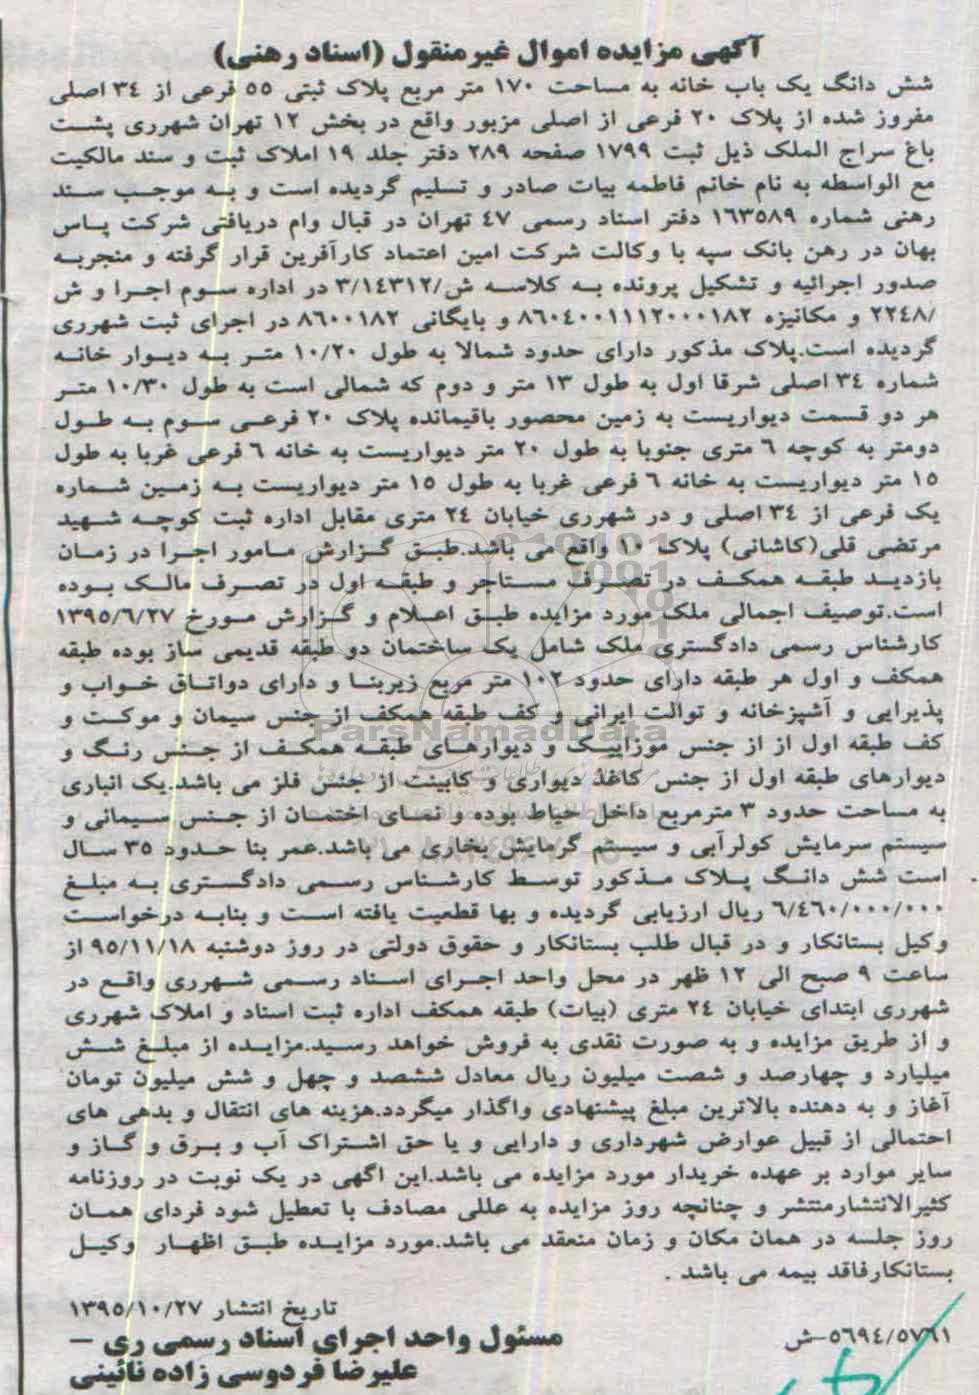 آگهی مزایده اموال غیرمنقول (اسناد رهنی)
شش دانگ یک باب خانه به مساحت ۱۷۰ متر مربع پلاک ثبتی ۵۵ فرعی از ۳٤ اصلی
مفروز شده از پلاک ۲۰ فرعی از اصلی مزبور واقع در بخش ۱۲ تهران شهرری پشت
باغ سراج الملک ذیل ثبت ۱۷۹۹ صفحه ۲۸۹ دفتر جلد ۱۹ املاک ثبت و سند مالکیت
مع الواسطه به نام خانم فاطمه بیات صادر و تسلیم گردیده است و به موجب سند
رهنی شماره ۱۶۳۵۸۹ دفتر اسناد رسمی ٤۷ تهران در قبال وام دریافتی شرکت پاس
بهان در رهن بانک سپه با وکالت شرکت امین اعتماد کارآفرین قرار گرفته و منجربه
صدور اجرائیه و تشکیل پرونده به کلاسه ش/۳/۱٤۳۱۲ در اداره سوم اجرا و ش
/۲۲٤۸ و مکانیزه ۸۶۰٤۰۰۱۱۱۲۰۰۰۱۸۲ و بایگانی ۸۶۰۰۱۸۲ در اجرای ثبت شهرری
گردیده است.پلاک مذکور دارای حدود شمالا به طول ۱۰/۲۰ متر به دیوار خانه
شماره ۳٤ اصلی شرقا اول به طول ۱۳ متر و دوم که شمالی است به طول ۱۰/۳۰ متر
هر دو قسمت دیواریست به زمین محصور باقیمانده پلاک ۲۰ فرعی سوم به طول
دومتر به کوچه ۶ متری جنوبا به طول ۲۰ متر دیواریست به خانه ۶ فرعی غربا به طول
۱۵ متر دیواریست به خانه ۶ فرعی غربا به طول ۱۵ متر دیواریست به زمین شماره
یک فرعی از ۳٤ اصلی و در شهرری خیابان ۲٤ متری مقابل اداره ثبت کوچه شهید
مرتضی قلی(کاشانی) پلاک ۱۰ واقع می باشد.طبق گزارش مامور اجرا در زمان
بازدید طبقه همکف در تصرف مستاجر و طبقه اول در تصرف مالک بوده
است.توصیف اجمالی ملک مورد مزایده طبق اعلام و گزارش مورخ ۱۳۹۵/۶/۲۷
کارشناس رسمی دادگستری ملک شامل یک ساختمان دو طبقه قدیمی ساز بوده طبقه
همکف و اول هر طبقه دارای حدود ۱۰۲ متر مربع زیربنا و دارای دواتاق خواب و
پذیرایی و آشپزخانه و توالت ایرانی و کف طبقه همکف از جنس سیمان و موکت و
کف طبقه اول از از جنس موزاییک و دیوارهای طبقه همکف از جنس رنگ و
دیوارهای طبقه اول از جنس کاغذ دیواری و کابینت از جنس فلز می باشد.یک انباری
به مساحت حدود ۳ مترمربع داخل حیاط بوده و نمای اختمان از جنس سیمانی و
سیستم سرمایش کولرآبی و سیستم گرمایش بخاری می باشد.عمر بنا حدود ۳۵ سال
است شش دانگ پلاک مذکور توسط کارشناس رسمی دادگستری به مبلغ
۶/٤۶۰/۰۰۰/۰۰۰ ریال ارزیابی گردیده و بها قطعیت یافته است و بنابه درخواست
وکیل بستانکار و در قبال طلب بستانکار و حقوق دولتی در روز دوشنبه ۹۵/۱۱/۱۸ از
ساعت ۹ صبح الی ۱۲ ظهر در محل واحد اجرای اسناد رسمی شهرری واقع در
شهرری ابتدای خیابان ۲٤ متری (بیات) طبقه همکف اداره ثبت اسناد و املاک شهرری
و از طریق مزایده و به صورت نقدی به فروش خواهد رسید.مزایده از مبلغ شش
میلیارد و چهارصد و شصت میلیون ریال معادل ششصد و چهل و شش میلیون تومان
آغاز و به دهنده بالاترین مبلغ پیشنهادی واگذار میگردد.هزینه های انتقال و بدهی های
احتمالی از قبیل عوارض شهرداری و دارایی و یا حق اشتراک آب و برق و گاز و
سایر موارد بر عهده خریدار مورد مزایده می باشد.این اگهی در یک نوبت در روزنامه
کثیرالانتشارمنتشر و چنانچه روز مزایده به عللی مصادف با تعطیل شود فردای همان
روز جلسه در همان مکان و زمان منعقد می باشد.مورد مزایده طبق اظهار وکیل
بستانکارفاقد بیمه می باشد .
تاریخ انتشار ۱۳۹۵/۱۰/۲۷
مسئول واحد اجرای اسناد رسمی ری –
علیرضا فردوسی زاده نائینی
۵۶۹٤/۵۷۶۱-ش
ParsNamadData